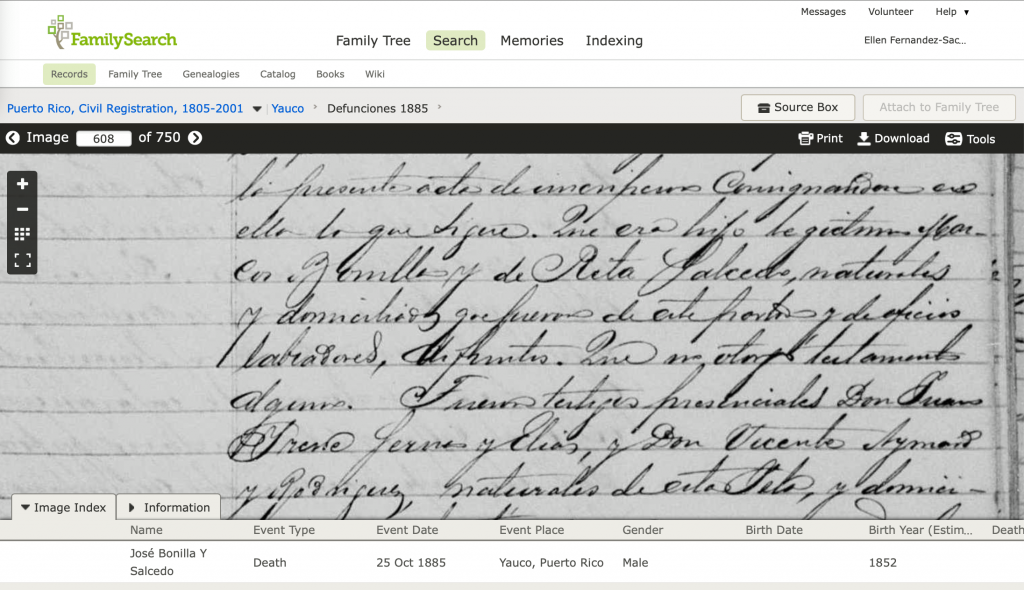 Messages Volunteer Help ▼
FamilySearch
Family Tree Search Memories Indexing
Ellen Fernandez-Sac...
Records Family Tree Genealogies Catalog Books Wiki
Puerto Rico, Civil Registration, 1805-2001 Yauco Defunciones 1885
Source Box Attach to Family Tree
Image 608 of 750
Print Download Tools
la presente acta de inscripcion Consignandose en
ella lo que sigue. Que era hijo legitimo Mar-
cos Bonilla y de Rita Salcedo, naturales
y domiciliados que fueron de este y de oficios
labradores, difuntos. Que no otorgó testamento
alguno. Fueron testigos presenciales Don Juan
Irene y Elias, y Don Vicente Aymard
y Rodriguez, naturales de esta Isla, y domici-
Image Index Information
Name Event Type Event Date Event Place Gender Birth Date Birth Year (Estim... Death
José Bonilla Y
Salcedo
Death 25 Oct 1885 Yauco, Puerto Rico Male 1852